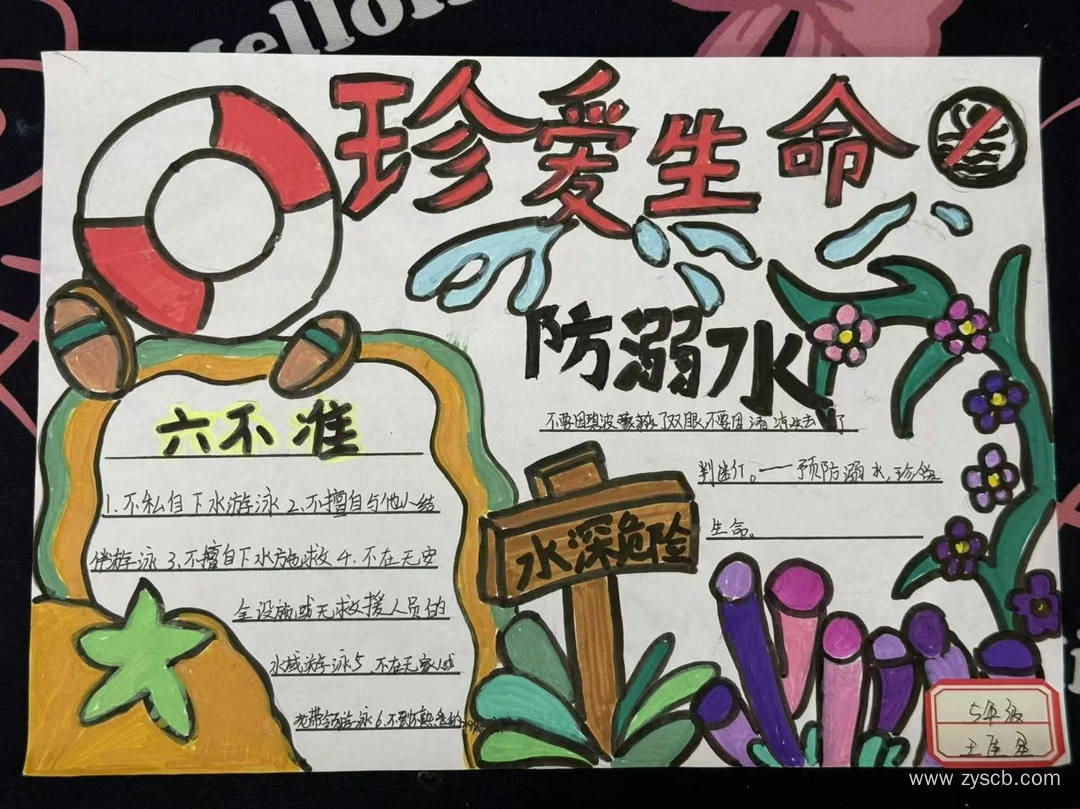 Hello
珍爱生命
防溺水
不要因碧波 了双眼不要因清凉失去了
判断力。——预防溺水,珍惜
生命。
六不准
1、不私自下水游泳 2、不擅自与他人结
伴游泳 3、不擅自下水施救 4、不在无安
全设施或无救援人员的
水域游泳 5、不在无家长或
带 游泳 6、不到不熟悉的
水深危险
5年级
王
www.zyscb.com